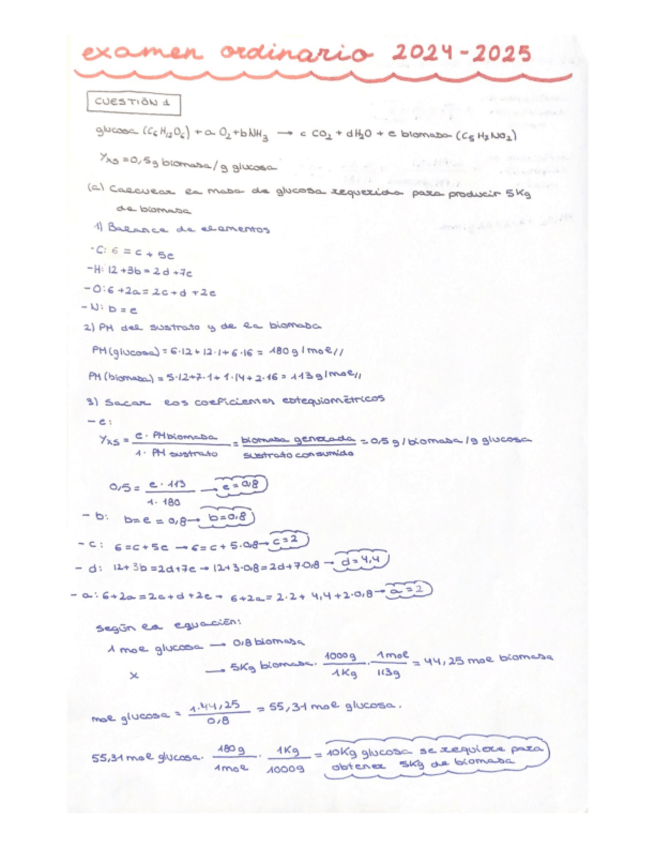 examen ordinario 2024-2025
CUESTIÓN 1
glucosa (C6H12O6) + a O2 + b NH3 → c CO2 + d H2O + e biomasa (C5H7NO2)
Yxs = 0,5 g biomasa / g glucosa
(a) Calcular la masa de glucosa requerida para producir 5Kg
de biomasa
1) Balance de elementos
-C: 6 = c + 5e
-H: 12+3b = 2d+7e
-O: 6+2a = 2c+d+2e
-N: b = e
2) PM del sustrato y de la biomasa
PM(glucosa) = 6·12 + 12·1 + 6·16 = 180 g/mol//
PM(biomasa) = 5·12+7·1+1·14+2·16 = 113 g/mol//
3) Sacar los coeficientes estequiométricos
- e:
Yxs = e · PM biomasa / 1 · PM sustrato = biomasa generada / sustrato consumido = 0,5 g/biomasa/g glucosa
0,5 = e · 113 / 1 · 180 → e = 0,8
- b: b = e = 0,8 → b = 0,8
- c: 6 = c+5e → 6 = c + 5·0,8 → c = 2
- d: 12+3b = 2d+7e → 12+3·0,8 = 2d+7·0,8 → d = 4,4
- a: 6+2a = 2c+d+2e → 6+2a = 2·2 + 4,4 + 2·0,8 → a = 2
según la equación:
1 mol glucosa → 0,8 biomasa
x → 5Kg biomasa · 1000g / 1Kg · 1mol / 113g = 44,25 mol biomasa
mol glucosa = 1·44,25 / 0,8 = 55,31 mol glucosa.
55,31 mol glucosa · 180g / 1mol · 1Kg / 1000g = 10Kg glucosa se requiere para
obtener 5Kg de biomasa